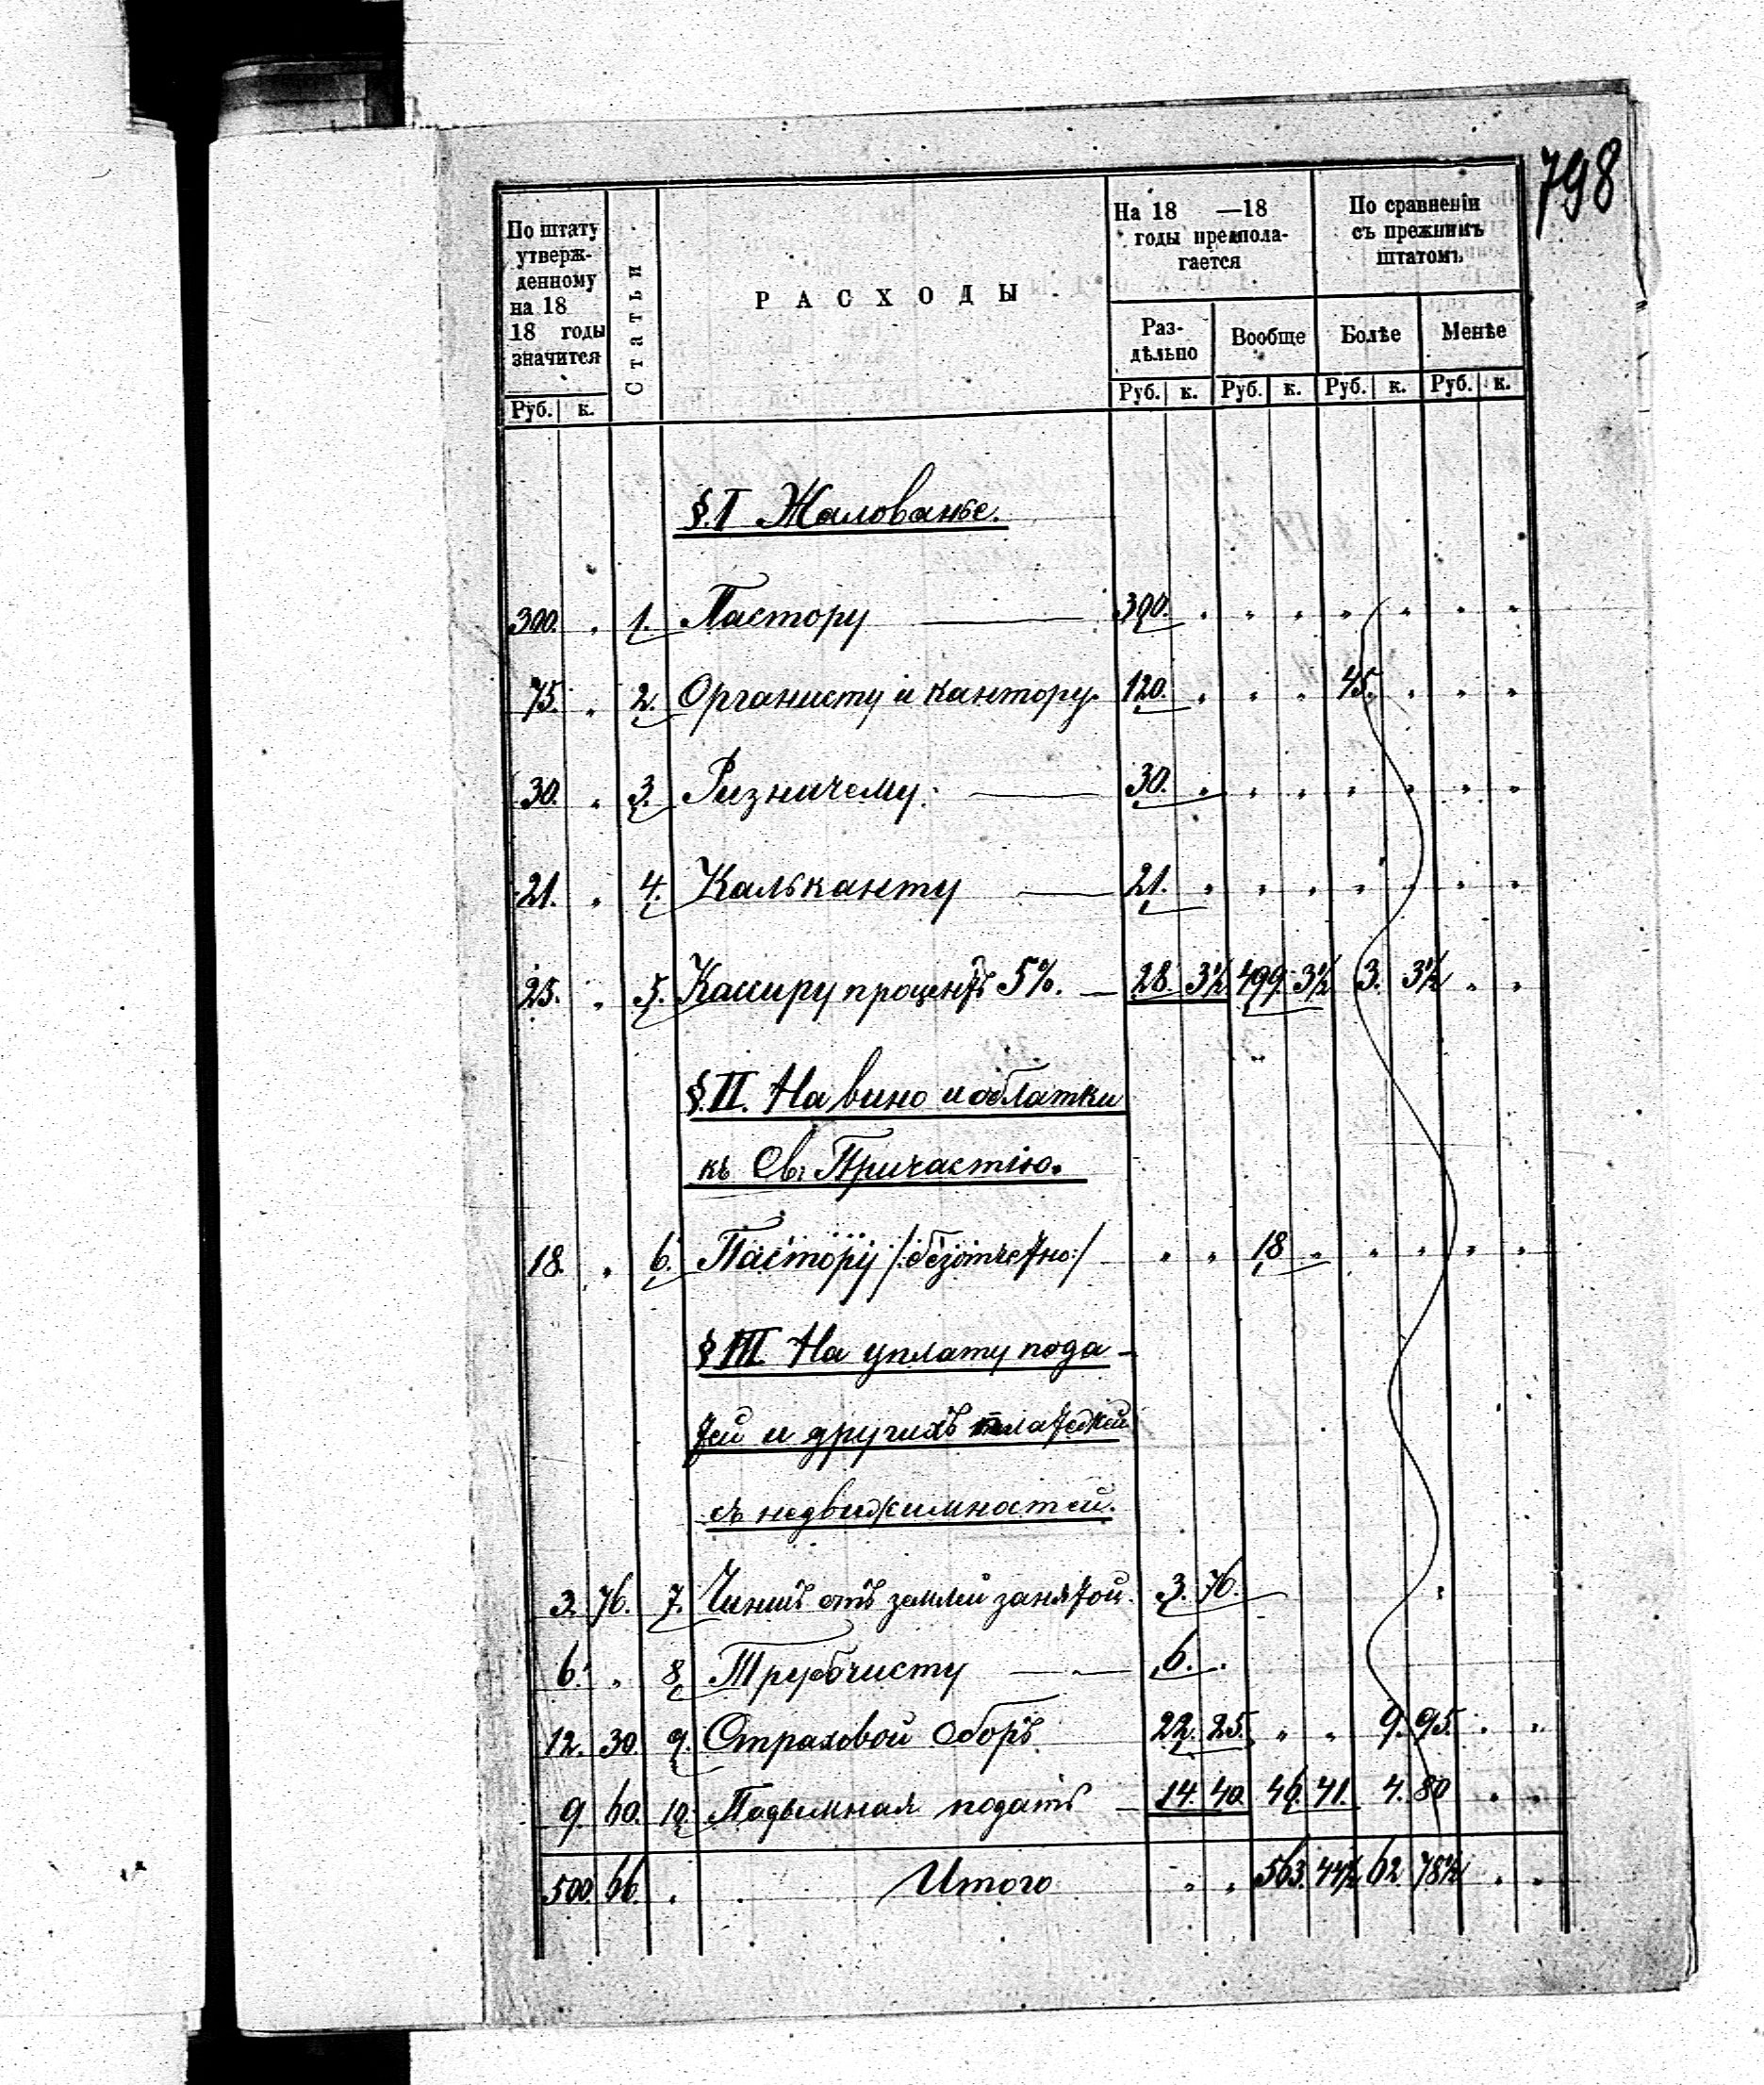 798
По штату
утверж-
денному
на 18
18 годы
значится
Статьи
РАСХОДЫ
На 18 —18
годы предпола-
гается
По сравненіи
съ прежнимъ
штатомъ
Раз-
дѣльно
Вообще
Болѣе
Менѣе
Руб. к. Руб. к. Руб. к. Руб. к. Руб. к.
§.I Жалованье.
300. „ 1. Пастору — 300. „ „ „ „ „ „ „
75. „ 2. Органисту и кантору. 120. „ „ „ 45. „ „ „
30. „ 3. Ризничему. — 30. „ „ „ „ „ „ „
21. „ 4. Кальканту — 21. „ „ „ „ „ „ „
25. „ 5. Кассиру процентъ 5%. — 28. 3½ 499. 3½ 3. 3½ „ „
§.II. На вино и облатки
къ Св. Причастію.
18. „ 6. Пастору /:безотчетно:/ „ „ 18 „ „ „ „ „
§ III. На уплату пода-
тей и другихъ платежей
съ недвижимностей.
3. 76. 7. Чиншъ отъ землей занятой. 3. 76.
6. „ 8. Трубочисту — 6. „
12. 30. 9. Страховой сборъ 22. 25. „ „ 9. 95. „ „
9. 60. 10. Подымная подать — 14. 40. 46. 41. 4. 80 „ „
500. 66. „ Итого „ „ 563. 44½ 62. 78½ „ „